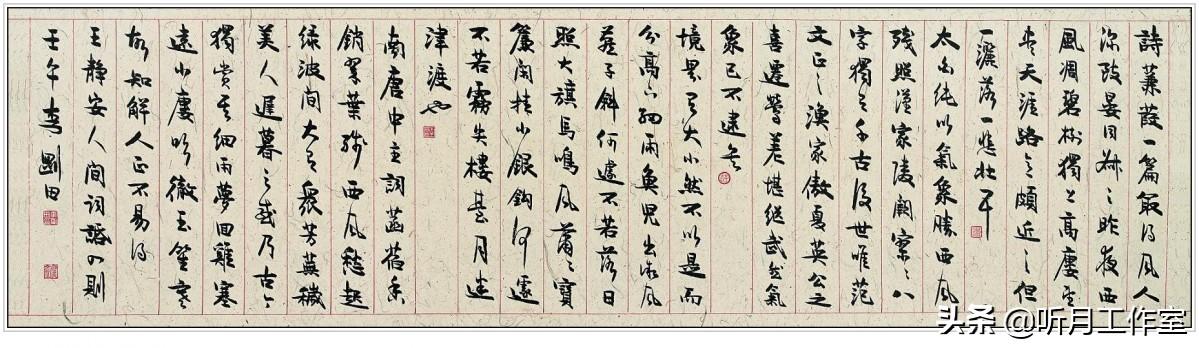 詩蒹葭一篇最得風人
深致晏同叔之昨夜西
風凋碧樹獨上高樓望
盡天涯路意頗近之但
一灑落一悲壯耳
太白純以氣象勝西風
殘照漢家陵闕寥〻八
字獨有千古後世唯范
文正之漁家傲夏英公之
喜遷鶯差堪繼武然氣
象已不逮矣
境界有大小然不以是而
分高下細雨魚兒出微風
燕子斜何遽不若落日
照大旗馬鳴風蕭〻寶
簾閒挂小銀鈎何遽
不若霧失樓臺月迷
津渡也
南唐中主詞菡萏香
銷翠葉殘西風愁起
綠波間大有衆芳蕪穢
美人遲暮之感乃古今
獨賞其細雨夢回雞塞
遠小樓吹徹玉笙寒
故知解人正不易得
王靜安人間詞話四則
壬午李剛田
头条 @听月工作室